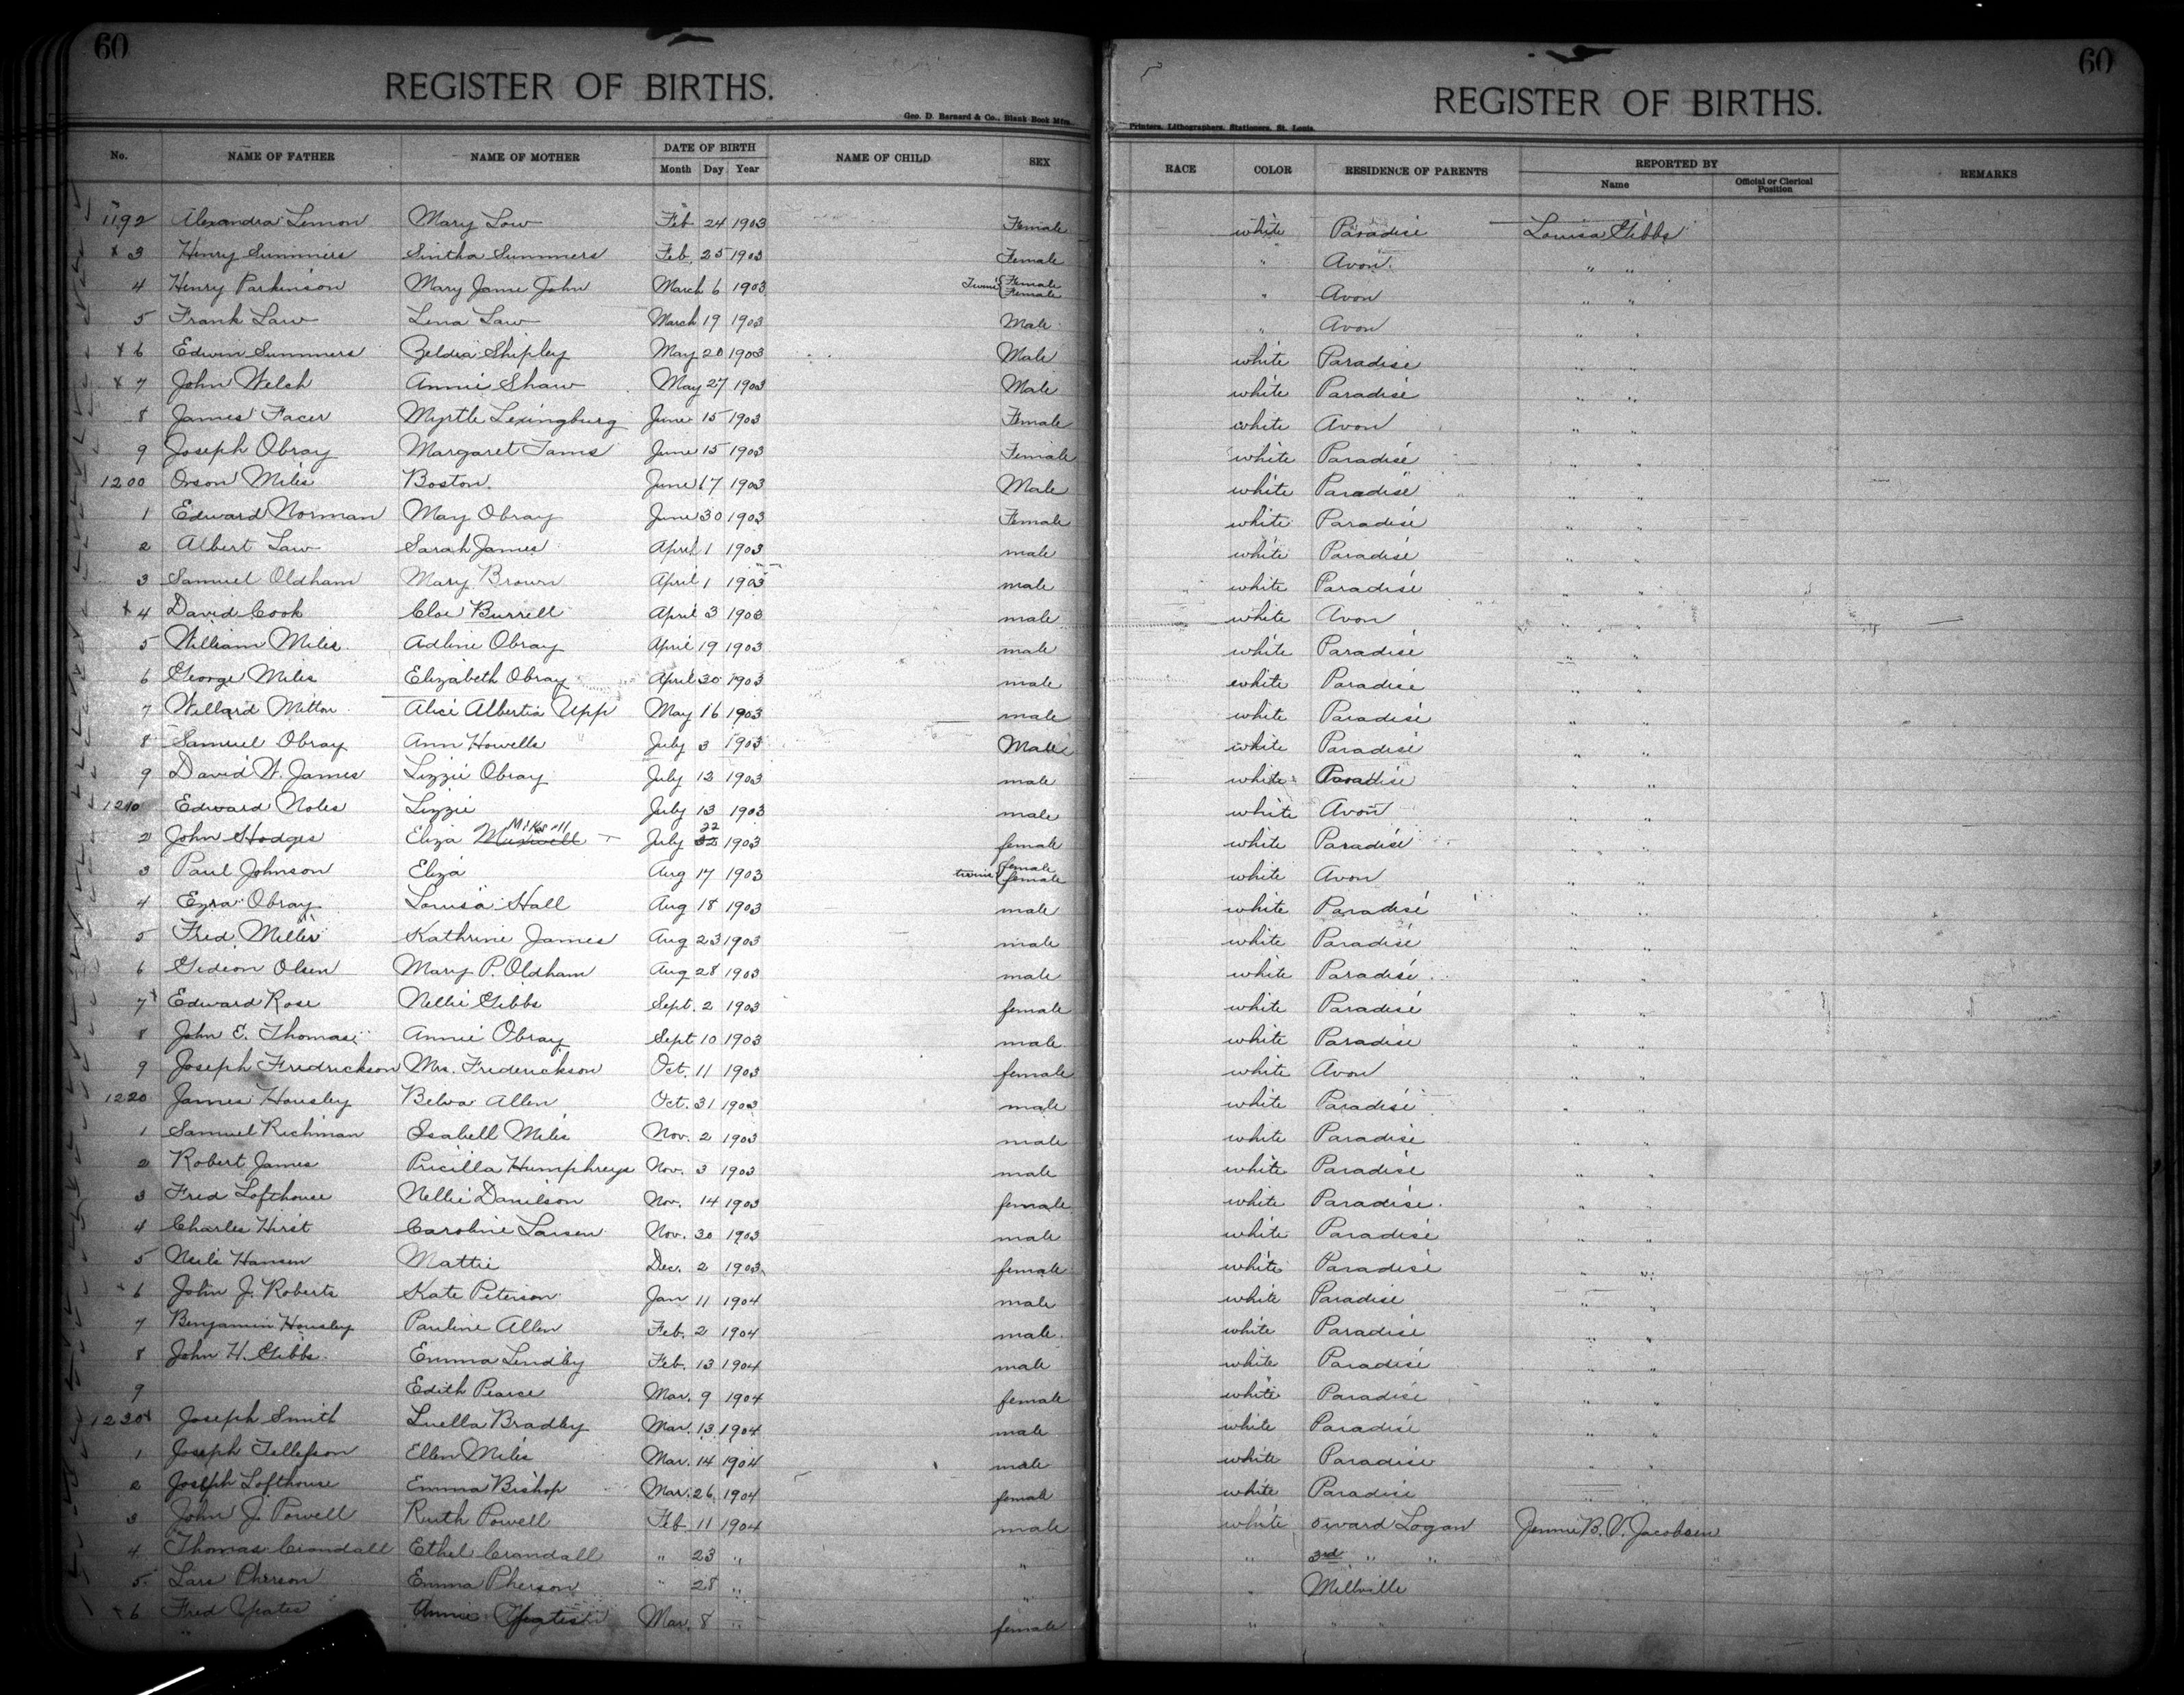 60
REGISTER OF BIRTHS.
Geo. D. Barnard & Co., Blank Book Mfrs.
60
REGISTER OF BIRTHS.
Printers, Lithographers, Stationers, St. Louis.
No. NAME OF FATHER NAME OF MOTHER DATE OF BIRTH Month Day Year NAME OF CHILD SEX RACE COLOR RESIDENCE OF PARENTS REPORTED BY Name Official or Clerical Position REMARKS
1192 Alexandra Lemon Mary Low Feb 24 1903 Female white Paradise Louisa Gibbs
x 3 Henry Summers Sintha Summers Feb. 25 1903 Female " Avon. " "
4 Henry Parkinson Mary Jane John March 6 1903 Twins { Female Female " Avon " "
5 Frank Law Lena Law March 19 1903 Male " Avon " "
x 6 Edwin Summers Zeldia Shipley May 20 1903 Male white Paradise " "
x 7 John Welch Annie Shaw May 27 1903 Male white Paradise " "
8 James Facer Myrtle Lexingburg June 15 1903 Female white Avon " "
9 Joseph Obray Margaret Tams June 15 1903 Female white Paradise " "
1200 Orson Miles Boston. June 17 1903 Male white Paradise " "
1 Edward Norman May Obray June 30 1903 Female white Paradise " "
2 Albert Law Sarah James April 1 1903 male white Paradise " "
3 Samuel Oldham Mary Brown April 1 1903 male white Paradise " "
x 4 David Cook Cloe Burrell April 3 1903 male white Avon " "
5 William Miles. Adline Obray April 19 1903 male white Paradise " "
6 George Miles Elizabeth Obray April 30 1903 male white Paradise " "
7 Willard Mitton Alice Albertia Upp May 16 1903 male white Paradise " "
8 Samuel Obray Ann Howells July 3 1903 Male white Paradise " "
9 David W. James Lizzie Obray July 13 1903 male white Paradise " "
1210 Edward Noles Lizzie July 13 1903 male white Avon " "
2 John Hodges Eliza July 22 1903 female white Paradise " "
3 Paul Johnson Eliza Aug 17 1903 twins { female female white Avon " "
4 Ezra Obray Louisa Hall Aug 18 1903 male white Paradise " "
5 Fred Miller Kathrine James Aug 23 1903 male white Paradise " "
6 Gideon Olsen Mary P. Oldham Aug 28 1903 male white Paradise " "
7 x Edward Rose Nellie Gibbs Sept. 2 1903 female white Paradise " "
8 John E. Thomas Annie Obray Sept 10 1903 male white Paradise " "
9 Joseph Fredrickson Mrs. Frederickson Oct. 11 1903 female white Avon " "
1220 James Housley Belva Allen Oct. 31 1903 male white Paradise " "
1 Samuel Richman Isabell Miles Nov. 2 1903 male white Paradise " "
2 Robert James Pricilla Humphreys Nov. 3 1903 male white Paradise " "
3 Fred Lofthouse Nellie Danilson Nov. 14 1903 female white Paradise. " "
4 Charles Hirst Caroline Larsen Nov. 30 1903 male white Paradise " "
5 Neils Hansen Mattie Dec. 2 1903 female white Paradise " "
x 6 John J. Roberts Kate Peterson Jan 11 1904 male white Paradise " "
7 Benjamin Housley Pauline Allen Feb. 2 1904 male white Paradise " "
8 John H. Gibbs Emma Lindley Feb. 13 1904 male white Paradise " "
9 Edith Pearce Mar. 9 1904 female white Paradise " "
1230 x Joseph Smith Luella Bradley Mar. 13 1904 male white Paradise " "
1 Joseph Tellefson Ellen Miles Mar. 14 1904 male white Paradise " "
2 Joseph Lofthouse Emma Bishop Mar. 26 1904 female white Paradise " "
3 John J. Powell Ruth Powell Feb. 11 1904 male white 5 ward Logan Jennie B. V. Jacobsen
4 Thomas Crandall Ethel Crandall " 23 " " " 3rd " " "
5. Lars Pherson Emma Pherson " 28 " " " Millville
x 6 Fred Yeates Annie Yeates Mar. 8 " female " " "